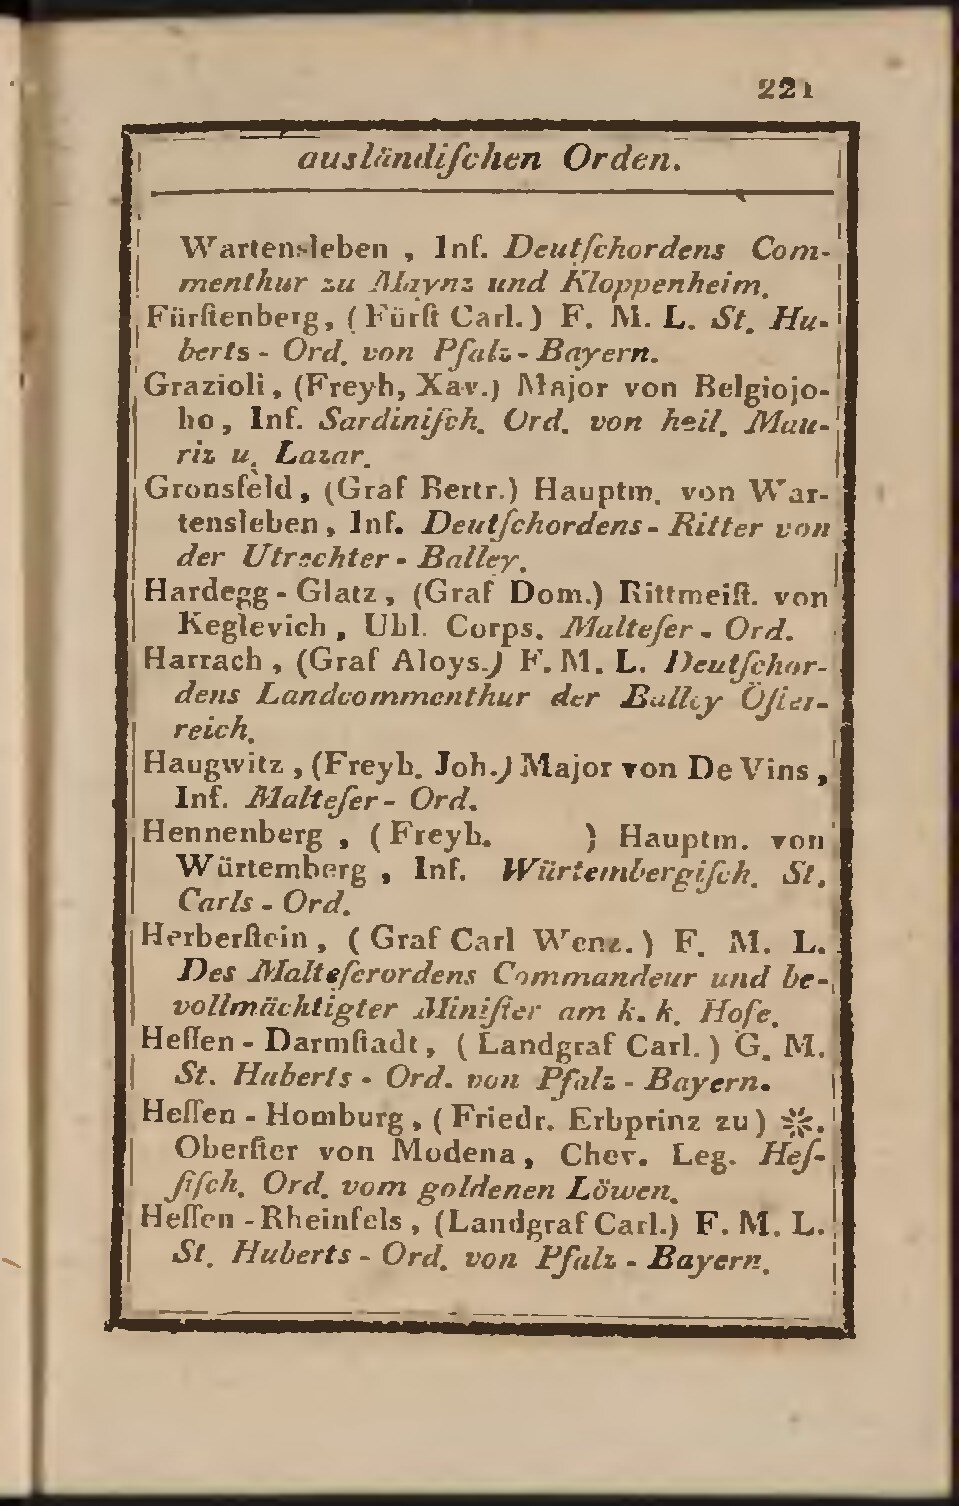 221
ausländiſchen Orden.
Wartensleben , Inf. Deutſchordens Com-
menthur zu Maynz und Kloppenheim.
Fürſtenberg, ( Fürſt Carl. ) F. M. L. St. Hu-
berts - Ord. von Pfalz - Bayern.
Grazioli, (Freyh, Xav.) Major von Belgiojo-
ho, Inf. Sardiniſch. Ord. von heil. Mau-
riz u. Lazar.
Gronsfeld, (Graf Bertr.) Hauptm. von War-
tensleben, Inf. Deutſchordens - Ritter von
der Utrechter - Balley.
Hardegg - Glatz, (Graf Dom.) Rittmeiſt. von
Keglevich, Uhl. Corps. Malteſer - Ord.
Harrach, (Graf Aloys.) F. M. L. Deutſchor-
dens Landcommenthur der Balley Öſter-
reich.
Haugwitz, (Freyh. Joh.) Major von De Vins,
Inf. Malteſer - Ord.
Hennenberg, ( Freyh. ) Hauptm. von
Würtemberg, Inf. Würtembergiſch. St.
Carls - Ord.
Herberſtein, ( Graf Carl Wenz. ) F. M. L.
Des Malteſerordens Commandeur und be-
vollmächtigter Miniſter am k. k. Hofe.
Heſſen - Darmſtadt, ( Landgraf Carl. ) G. M.
St. Huberts - Ord. von Pfalz - Bayern.
Heſſen - Homburg, ( Friedr. Erbprinz zu ) ※.
Oberſter von Modena, Chev. Leg. Heſ-
ſiſch. Ord. vom goldenen Löwen.
Heſſen - Rheinfels, (Landgraf Carl.) F. M. L.
St. Huberts - Ord. von Pfalz - Bayern.